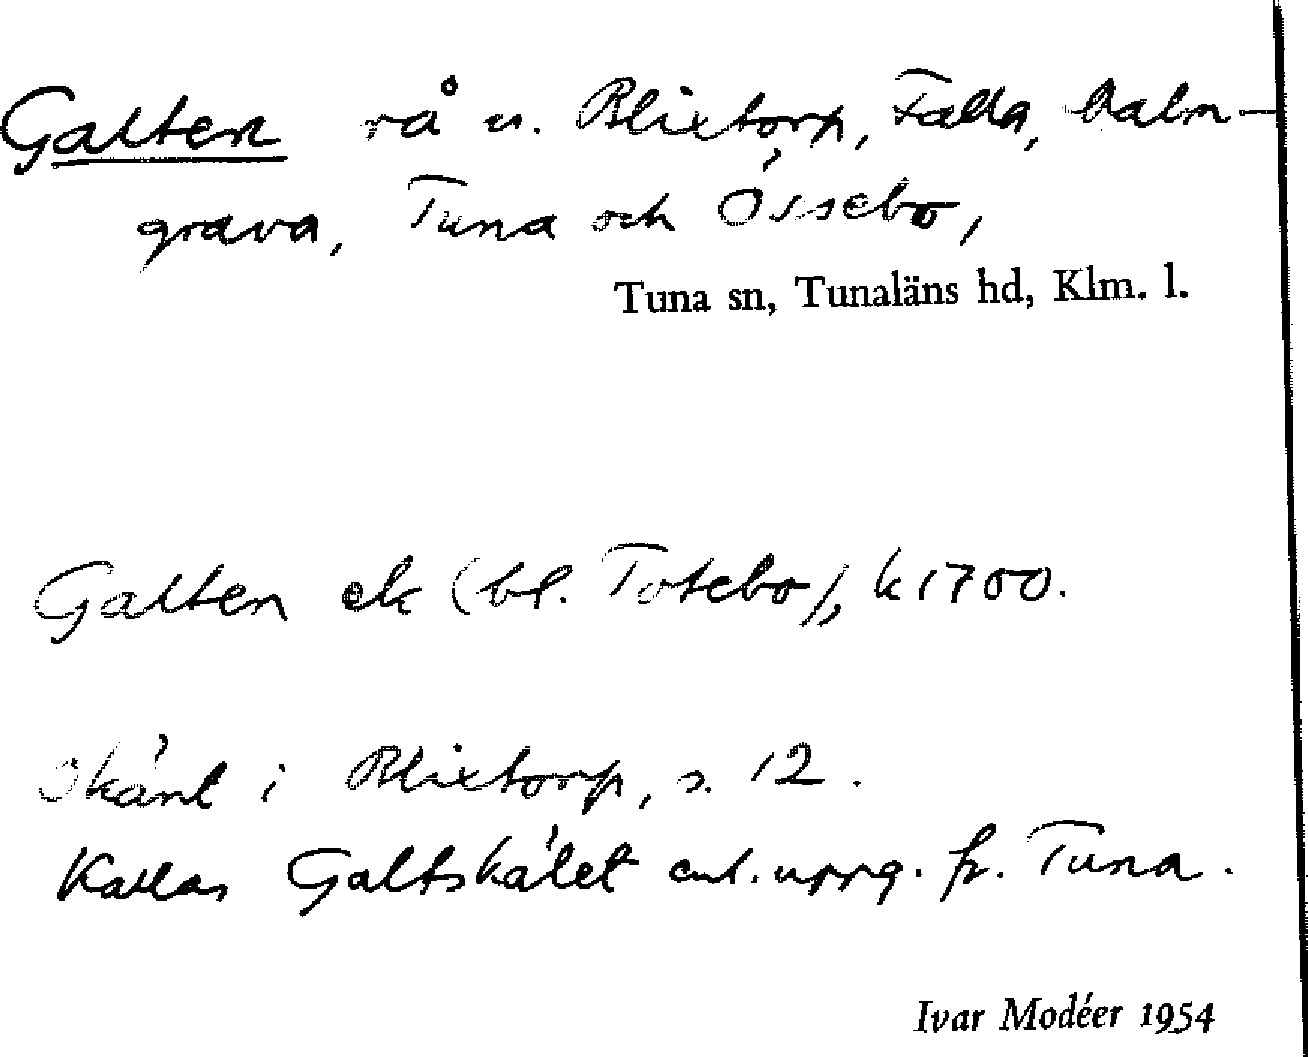 Galten rå u. Blixtorp, Falla, Malm-
grava, Tuna och Össebo,
Tuna sn, Tunaläns hd, Klm. l.
Galten ek (bl. Totebo), k 1700.
Okänt i Blixtorp, s. 12.
Kallas Galtskålet enl. uppg. fr. Tuna.
Ivar Modéer 1954